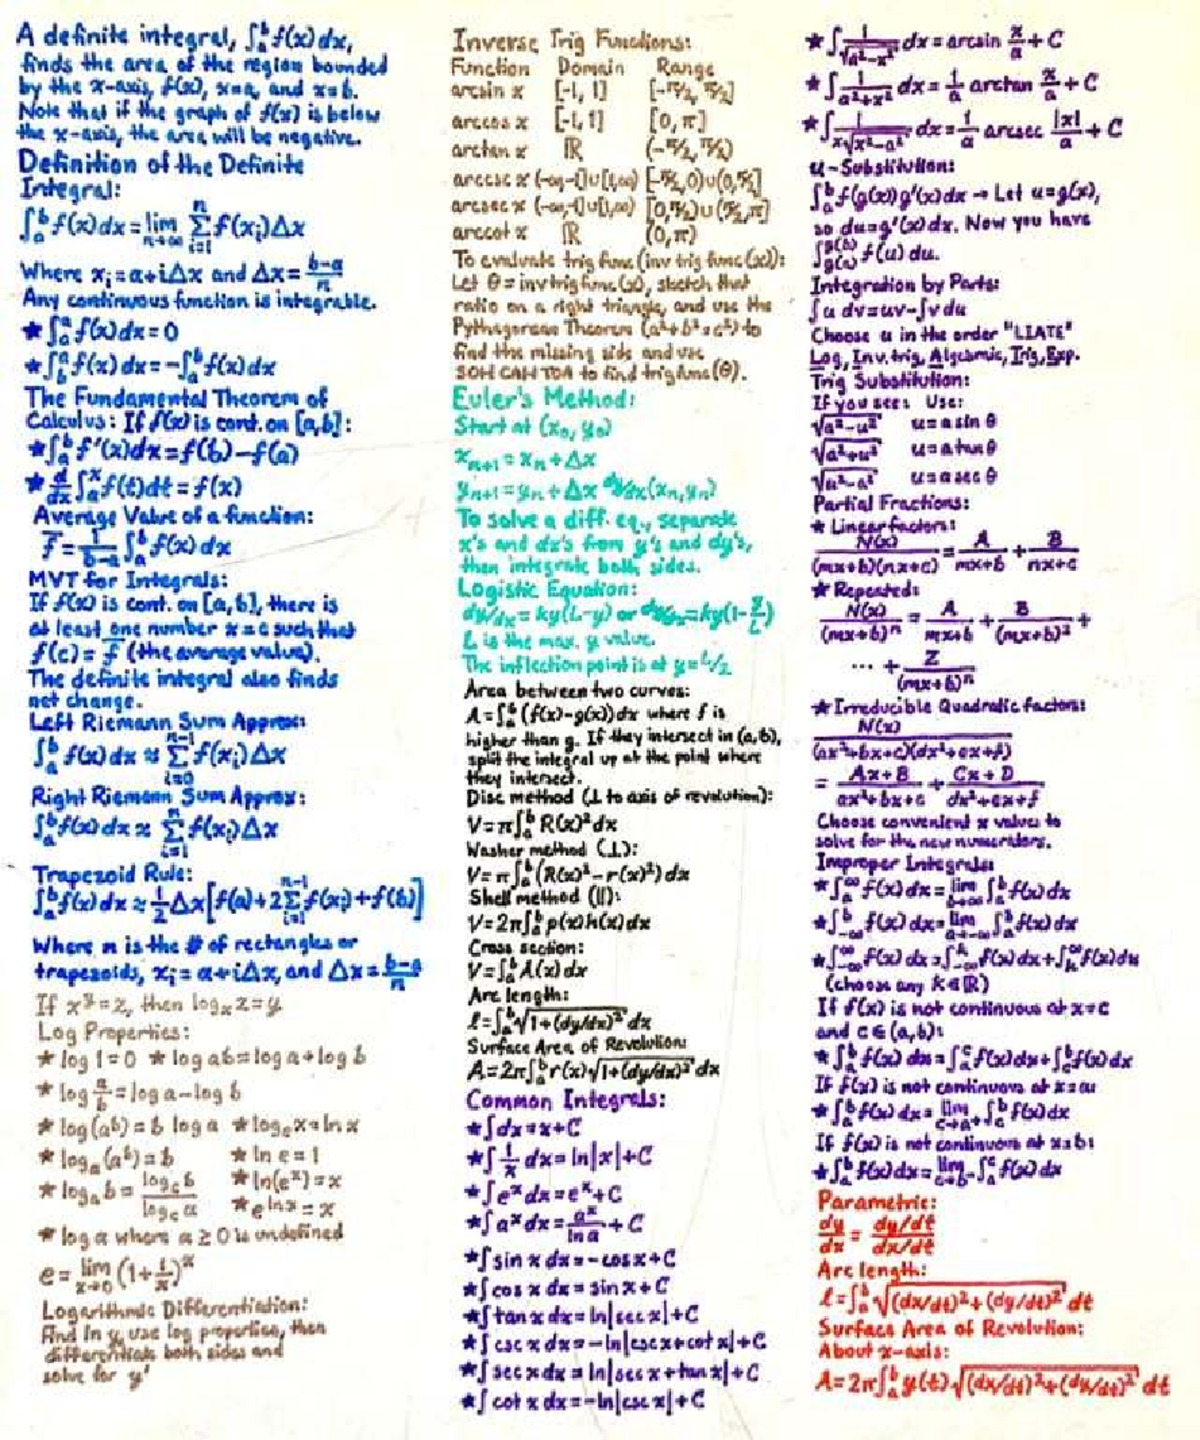 A definite integral, ∫ₐᵇ f(x) dx,
finds the area of the region bounded
by the x-axis, f(x), x=a, and x=b.
Note that if the graph of f(x) is below
the x-axis, the area will be negative.
Definition of the Definite
Integral:
∫ₐᵇ f(x) dx = lim n→∞ Σ i=1 n f(xᵢ)Δx
Where xᵢ=a+iΔx and Δx= (b-a)/n
Any continuous function is integrable.
★ ∫ₐᵃ f(x) dx = 0
★ ∫_b^a f(x) dx = -∫ₐᵇ f(x) dx
The Fundamental Theorem of
Calculus: If f(x) is cont. on [a,b]:
★ ∫ₐᵇ f'(x)dx = f(b)-f(a)
★ d/dx ∫ₐˣ f(t)dt = f(x)
Average Value of a function:
f̅ = 1/(b-a) ∫ₐᵇ f(x) dx
MVT for Integrals:
If f(x) is cont. on [a,b], there is
at least one number x=c such that
f(c) = f̅ (the average value).
The definite integral also finds
net change.
Left Riemann Sum Approx:
∫ₐᵇ f(x) dx ≈ Σ i=0 n-1 f(xᵢ)Δx
Right Riemann Sum Approx:
∫ₐᵇ f(x) dx ≈ Σ i=1 n f(xᵢ)Δx
Trapezoid Rule:
∫ₐᵇ f(x) dx ≈ 1/2 Δx [f(a)+2 Σ i=1 n-1 f(xᵢ)+f(b)]
Where n is the # of rectangles or
trapezoids, xᵢ=a+iΔx, and Δx= (b-a)/n
If xʸ=z, then logₓ z=y.
Log Properties:
★ log 1=0 ★ log ab=log a+log b
★ log a/b = log a-log b
★ log(aᵇ)=b log a ★ logₑx=ln x
★ logₐ(aᵇ)=b ★ ln e=1
★ logₐ b = log_c b / log_c a ★ ln(eˣ)=x
★ e^(ln x) = x
★ log a where a ≥ 0 is undefined
e = lim x→0 (1+1/x)ˣ
Logarithmic Differentiation:
Find ln y, use log properties, then
differentiate both sides and
solve for y'
Inverse Trig Functions:
Function Domain Range
arcsin x [-1, 1] [-π/2, π/2]
arccos x [-1, 1] [0, π]
arctan x ℝ (-π/2, π/2)
arccsc x (-∞,-1]∪[1,∞) [-π/2,0)∪(0,π/2]
arcsec x (-∞,-1]∪[1,∞) [0,π/2)∪(π/2,π]
arccot x ℝ (0,π)
To evaluate trig func (inv trig func (x)):
Let θ=inv trig func (x), sketch that
ratio on a right triangle, and use the
Pythagorean Theorem (a²+b²=c²) to
find the missing side and use
SOH CAH TOA to find trig func (θ).
Euler's Method:
Start at (x₀, y₀)
xₙ₊₁ = xₙ + Δx
yₙ₊₁ = yₙ + Δx dy/dx (xₙ,yₙ)
To solve a diff. eq., separate
x's and dx's from y's and dy's,
then integrate both sides.
Logistic Equation:
dy/dx = ky(L-y) or dy/dx = ky(1- y/L)
L is the max. y value.
The inflection point is at y = L/2
Area between two curves:
A=∫ₐᵇ (f(x)-g(x)) dx where f is
higher than g. If they intersect in (a,b),
split the integral up at the point where
they intersect.
Disc method (⊥ to axis of revolution):
V=π∫ₐᵇ R(x)² dx
Washer method (⊥):
V=π∫ₐᵇ (R(x)²-r(x)²) dx
Shell method (||):
V=2π∫ₐᵇ p(x)h(x) dx
Cross section:
V=∫ₐᵇ A(x) dx
Arc length:
ℓ=∫ₐᵇ √(1+(dy/dx)²) dx
Surface Area of Revolution:
A=2π∫ₐᵇ r(x)√(1+(dy/dx)²) dx
Common Integrals:
★ ∫dx=x+C
★ ∫ 1/x dx = ln|x|+C
★ ∫eˣ dx = eˣ+C
★ ∫aˣ dx = aˣ/ln a + C
★ ∫ sin x dx = -cos x+C
★ ∫ cos x dx = sin x+C
★ ∫ tan x dx = ln|sec x|+C
★ ∫ csc x dx = -ln|csc x+cot x|+C
★ ∫ sec x dx = ln|sec x+tan x|+C
★ ∫ cot x dx = -ln|csc x|+C
★ ∫ 1/√(a²-x²) dx = arcsin x/a + C
★ ∫ 1/(a²+x²) dx = 1/a arctan x/a + C
★ ∫ 1/(x√(x²-a²)) dx = 1/a arcsec |x|/a + C
u-Substitution:
∫ₐᵇ f(g(x))g'(x)dx → Let u=g(x),
so du=g'(x)dx. Now you have
∫_g(a)^g(b) f(u) du.
Integration by Parts:
∫u dv=uv-∫v du
Choose u in the order "LIATE"
Log, Inv. trig, Algebraic, Trig, Exp.
Trig Substitution:
If you see: Use:
√(a²-u²) u=a sin θ
√(a²+u²) u=a tan θ
√(u²-a²) u=a sec θ
Partial Fractions:
★ Linear factors:
N(x)/((mx+b)(nx+c)) = A/(mx+b) + B/(nx+c)
★ Repeated:
N(x)/(mx+b)ⁿ = A/(mx+b) + B/(mx+b)² +
... + Z/(mx+b)ⁿ
★ Irreducible Quadratic factors:
N(x)/((ax²+bx+c)(dx²+ex+f))
= (Ax+B)/(ax²+bx+c) + (Cx+D)/(dx²+ex+f)
Choose convenient x values to
solve for the new numerators.
Improper Integrals:
★ ∫ₐ^∞ f(x) dx = lim b→∞ ∫ₐᵇ f(x) dx
★ ∫_-∞^b f(x) dx = lim a→-∞ ∫ₐᵇ f(x) dx
★ ∫_-∞^∞ f(x) dx = ∫_-∞^k f(x) dx + ∫_k^∞ f(x) dx
(choose any k∈ℝ)
If f(x) is not continuous at x=c
and c∈(a,b):
★ ∫ₐᵇ f(x) dx = ∫ₐᶜ f(x) dx + ∫_c^b f(x) dx
If f(x) is not continuous at x=a:
★ ∫ₐᵇ f(x) dx = lim c→a⁺ ∫_c^b f(x) dx
If f(x) is not continuous at x=b:
★ ∫ₐᵇ f(x) dx = lim c→b⁻ ∫ₐᶜ f(x) dx
Parametric:
dy/dx = (dy/dt)/(dx/dt)
Arc length:
ℓ=∫ₐᵇ √((dx/dt)²+(dy/dt)²) dt
Surface Area of Revolution:
About x-axis:
A=2π∫ₐᵇ y(t) √((dx/dt)²+(dy/dt)²) dt